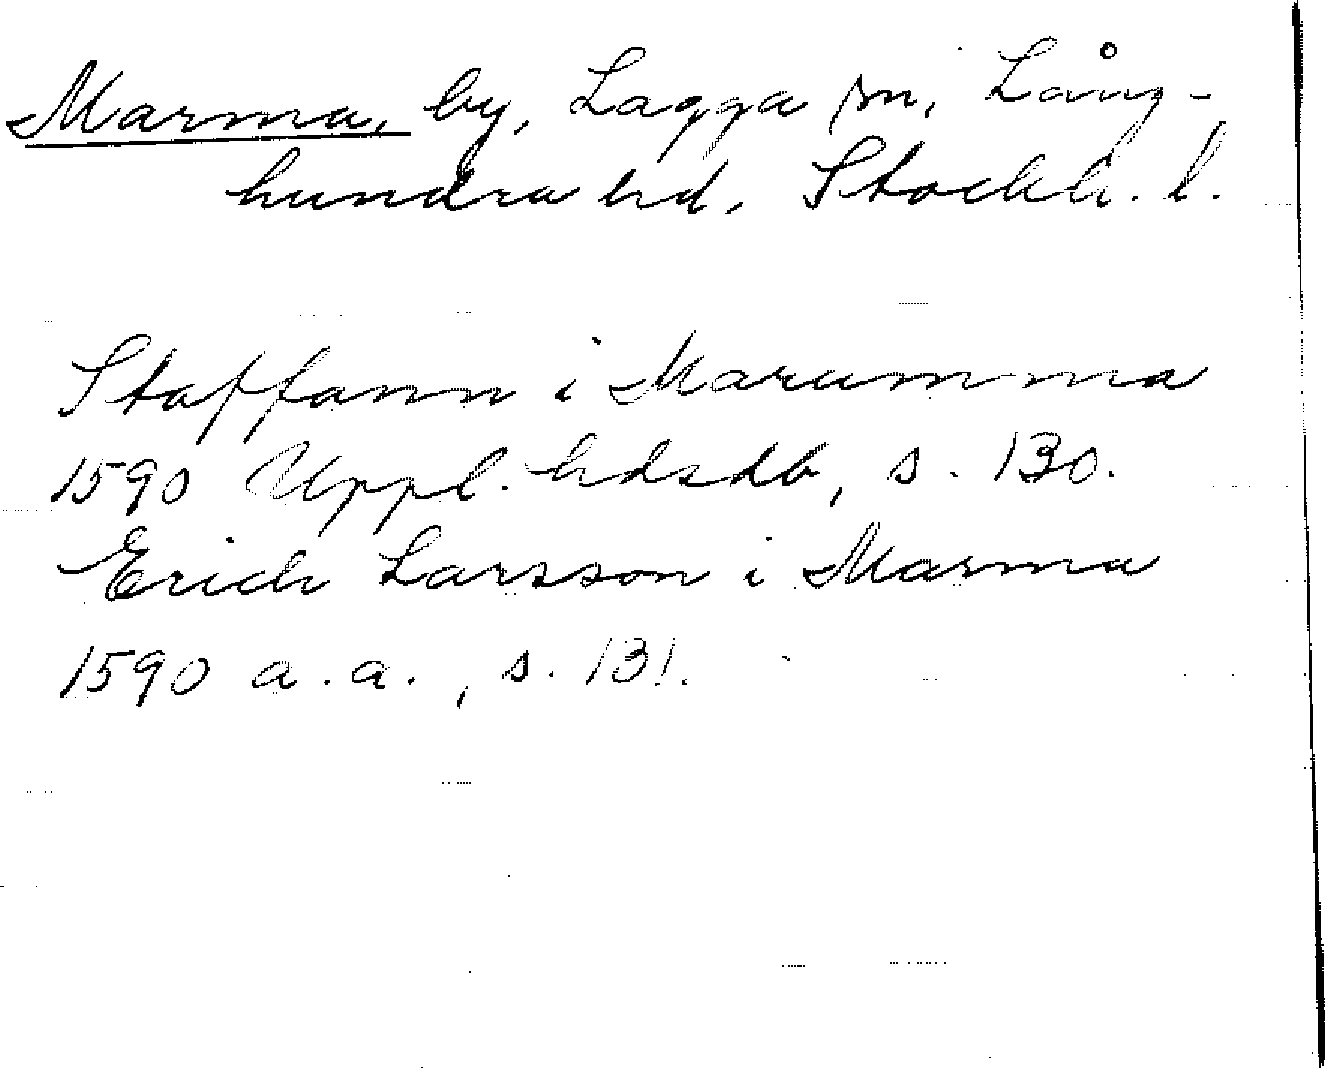 Marma, by, Lagga sn, Lång-
hundra hd, Stockh. l.
Staffann i Marumma
1590 Uppl. hdsdb, s. 130.
Erich Larsson i Marma
1590 a.a., s. 131.